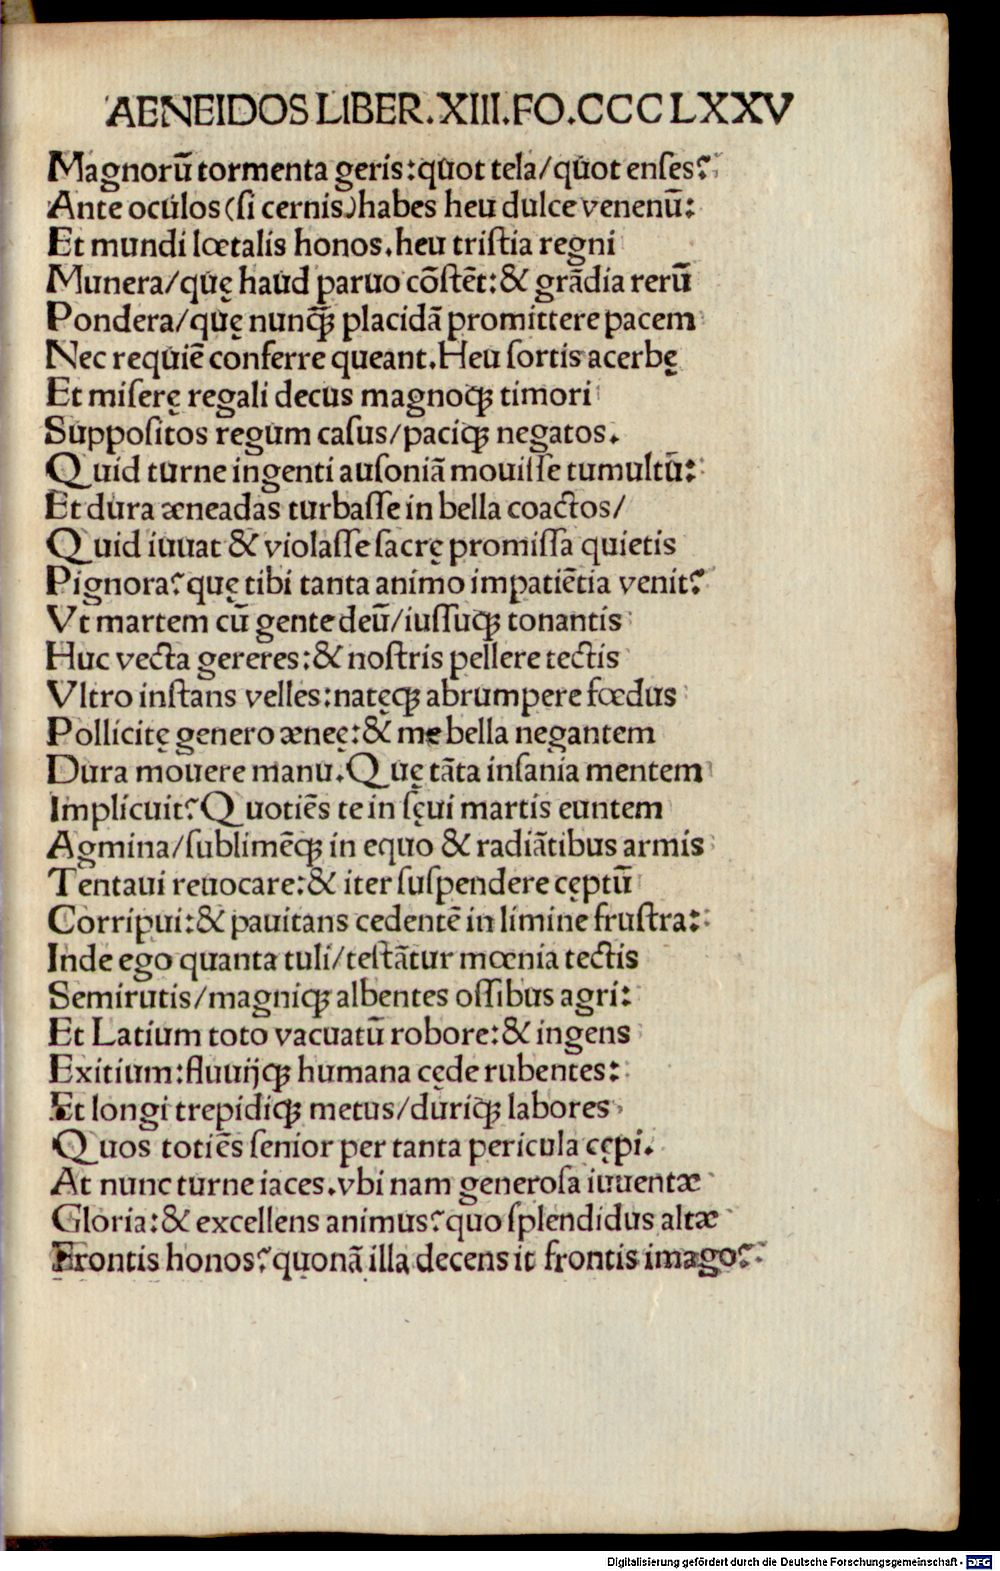 AENEIDOS LIBER. XIII. FO. CCCLXXV
Magnorū tormenta geris: quot tela/quot enses?
Ante oculos (ſi cernis) habes heu dulce venenū:
Et mundi lœtalis honos. heu triſtia regni
Munera/quę haud paruo cōſtēt: & grādia rerū
Pondera/quę nunꝙ̄ placidā promittere pacem
Nec requiē conferre queant. Heu ſortis acerbę
Et miſerę regali decus magnoqꝫ timori
Suppoſitos regum caſus/paciqꝫ negatos.
Quid turne ingenti auſoniā mouiſſe tumultū:
Et dura æneadas turbaſſe in bella coactos/
Quid iuuat & violaſſe ſacrę promiſſa quietis
Pignora? quę tibi tanta animo impatiētia venit?
Vt martem cū gente deū/iuſſuqꝫ tonantis
Huc vecta gereres: & noſtris pellere tectis
Vltro inſtans velles: natęqꝫ abrumpere fœdus
Pollicitę genero æneę: & me bella negantem
Dura mouere manu. Quę tāta inſania mentem
Implicuit? Quotiēs te in ſęui martis euntem
Agmina/ſublimēqꝫ in equo & radiātibus armis
Tentaui reuocare: & iter ſuſpendere cęptū
Corripui: & pauitans cedentē in limine fruſtra:
Inde ego quanta tuli/teſtātur mœnia tectis
Semirutis/magniqꝫ albentes oſſibus agri:
Et Latium toto vacuatū robore: & ingens
Exitium: fluuijqꝫ humana cęde rubentes:
Et longi trepidiqꝫ metus/duriqꝫ labores
Quos totiēs ſenior per tanta pericula cępi.
At nunc turne iaces. vbi nam generoſa iuuentæ
Gloria: & excellens animus? quo ſplendidus altæ
Frontis honos? quonā illa decens it frontis imago?
Digitalisierung gefördert durch die Deutsche Forschungsgemeinschaft - DFG